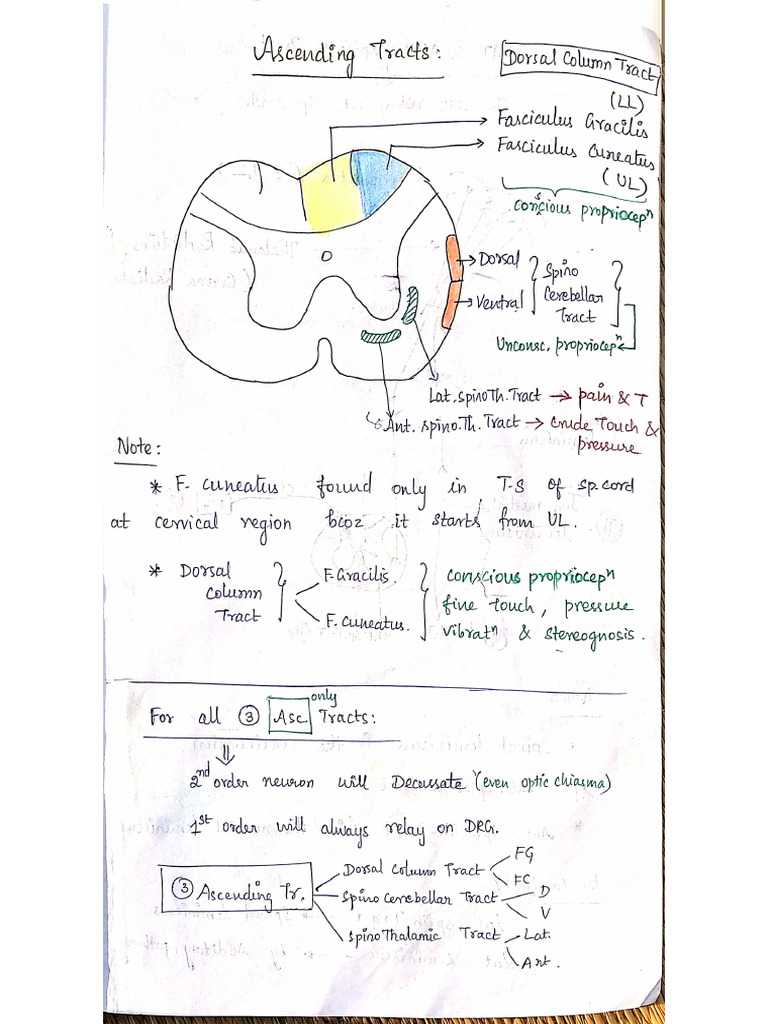 Ascending Tracts:
Dorsal Column Tract
(LL)
Fasciculus Gracilis
Fasciculus Cuneatus
(UL)
conscious propriocepⁿ
Dorsal
Ventral
Spino
Cerebellar
Tract
Unconsc. propriocepⁿ
Lat. spinoTh. Tract → pain & T
Ant. spino.Th. Tract → Crude Touch &
pressure
Note:
* F. cuneatus found only in T-S of sp.cord
at cervical region bcoz it starts from UL.
* Dorsal
Column
Tract
F. Gracilis.
F. Cuneatus.
conscious propriocepⁿ
fine touch, pressure
vibratⁿ & stereognosis.
only
For all ③ Asc Tracts:
2nd order neuron will Decussate (even optic chiasma)
1st order will always relay on DRG.
③ Ascending Tr.
Dorsal Column Tract
FG
FC
Spino Cerebellar Tract
D
V
SpinoThalamic Tract
Lat.
Ant.